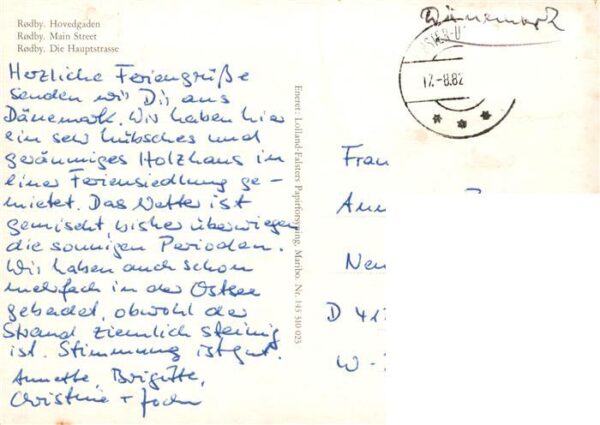 Rødby. Hovedgaden
Rødby. Main Street
Rødby. Die Hauptstrasse
Herzliche Feriengrüße
senden wir Dir aus
Dänemark. Wir haben hier
ein sehr hübsches und
geräumiges Holzhaus in
einer Feriensiedlung ge-
mietet. Das Wetter ist
gemischt, bisher überwiegen
die sonnigen Perioden.
Wir haben auch schon
mehrfach in der Ostsee
gebadet, obwohl der
Strand ziemlich steinig
ist. Stimmung ist gut.
Annette, Brigitte,
Christine + Jochen
Eneret: Lolland-Falsters Papirforsyning, Maribo. Nr. 145 510 023
Dänemark
17.-8.82
Frau
Ann
Neu
D 41
W-